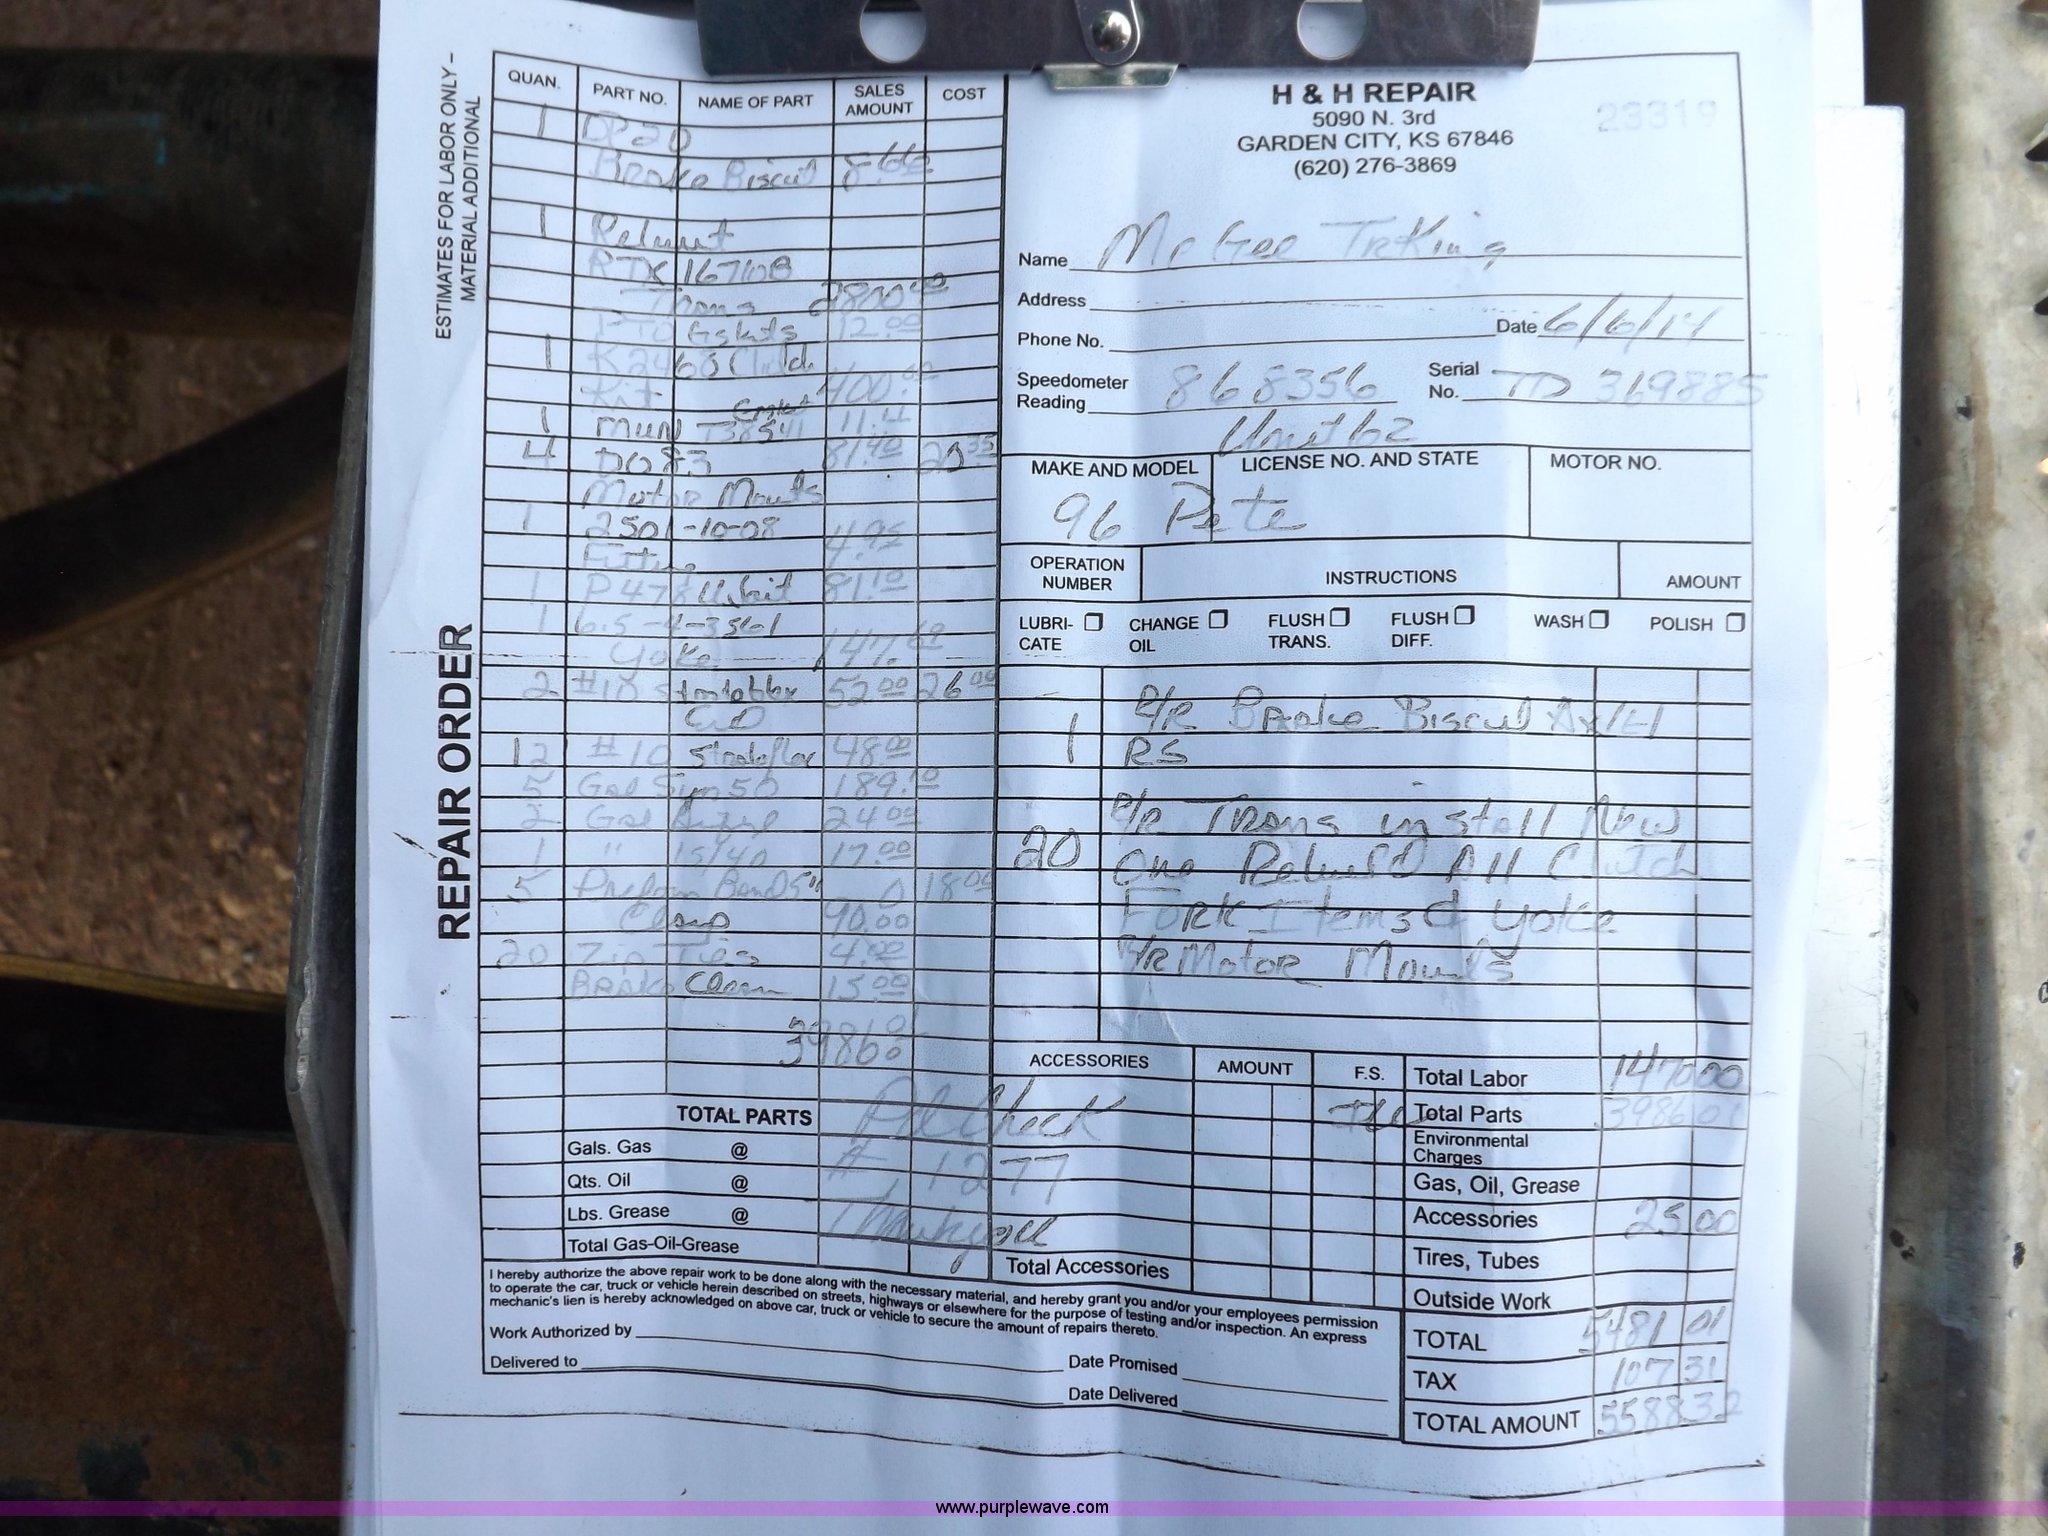 ESTIMATES FOR LABOR ONLY –
MATERIAL ADDITIONAL
REPAIR ORDER
QUAN. PART NO. NAME OF PART SALES AMOUNT COST
1 DP20
Brake Biscuit 8.66
1 Rebuilt
RTX 16710B
Trans 2800.00
PTO Gskts 12.00
1 K2468 Clutch
Kit 400.00
1 MUN T38541 Gasket 11.
4 D083 81.40 20.35
Motor Mounts
1 2501-10-08
Fitting 4.95
1 P478 U Kit 81.10
1 6.5-4-3561
Yoke 147.60
2 #10 52.00 26.00
End
12 #10 Strataflex 48.00
5 Gal Syn 50 189.10
2 Gal 24.00
1 " 15/40 17.00
5 Preform Band 5" 18.00
Clamp 90.00
20 Zip Ties 4.00
Brake Clean 15.00
3986.01
TOTAL PARTS
Gals. Gas @
Qts. Oil @
Lbs. Grease @
Total Gas-Oil-Grease
Pd Check
# 1277
Thank you
H & H REPAIR
5090 N. 3rd
GARDEN CITY, KS 67846
(620) 276-3869
23319
Name McGee Trking
Address
Date 6/6/14
Phone No.
Speedometer Reading 868356 Serial No. TD 369885
Unit 62
MAKE AND MODEL LICENSE NO. AND STATE MOTOR NO.
96 Pete
OPERATION NUMBER INSTRUCTIONS AMOUNT
LUBRI-CATE CHANGE OIL FLUSH TRANS. FLUSH DIFF. WASH POLISH
P/R Brake Biscuit Axle 1
1 RS
P/R Trans install New
20 One Rebuild All Clutch
Fork Items & Yoke
P/R Motor Mounts
ACCESSORIES AMOUNT F.S.
Total Accessories
Total Labor 1470 00
Total Parts 3986 01
Environmental Charges
Gas, Oil, Grease
Accessories 25 00
Tires, Tubes
Outside Work
TOTAL 5481 01
TAX 107 31
TOTAL AMOUNT 5588 32
I hereby authorize the above repair work to be done along with the necessary material, and hereby grant you and/or your employees permission
to operate the car, truck or vehicle herein described on streets, highways or elsewhere for the purpose of testing and/or inspection. An express
mechanic's lien is hereby acknowledged on above car, truck or vehicle to secure the amount of repairs thereto.
Work Authorized by
Delivered to
Date Promised
Date Delivered
www.purplewave.com